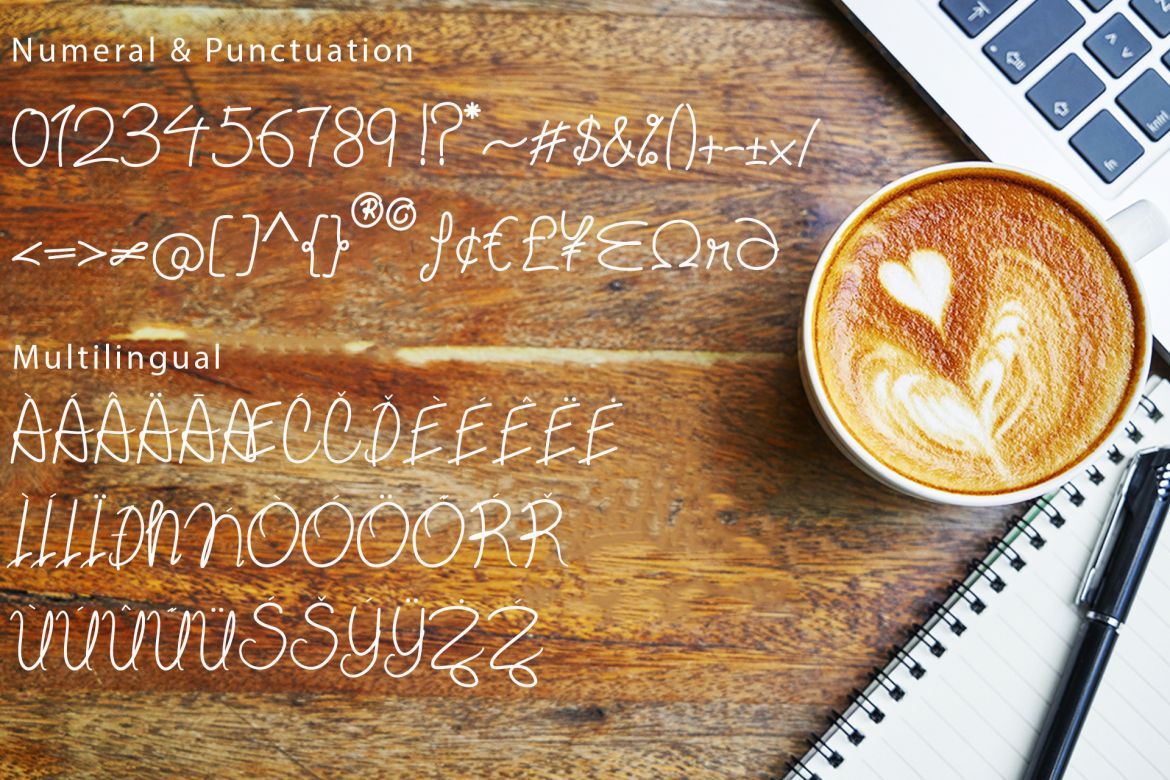 Numeral & Punctuation
0123456789 !?*~#$&%()+-±×/
<=>≠@[]^{}®© ƒ¢€£¥ΣΩπ∂
Multilingual
ÀÁÂÄĀÆĆČĎÈÉÊËĖ
ÌÍÎÏĐŇŃÒÓÖŐŔŘ
ÙÚÛŰÜŚŠÝŸŻŹ
fn